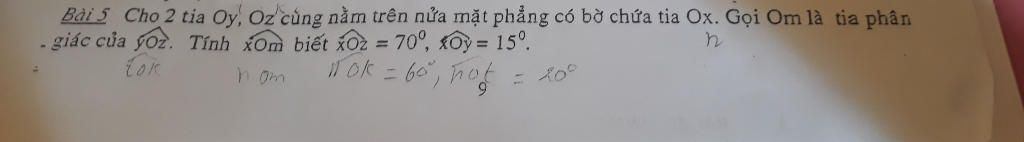 Bài 5 Cho 2 tia Oy, Oz cùng nằm trên nửa mặt phẳng có bờ chứa tia Ox. Gọi Om là tia phân
giác của yOz. Tính xOm biết xOz = 70⁰, xOy = 15⁰.
n
tok nom nok = 60°, not = 20°
9